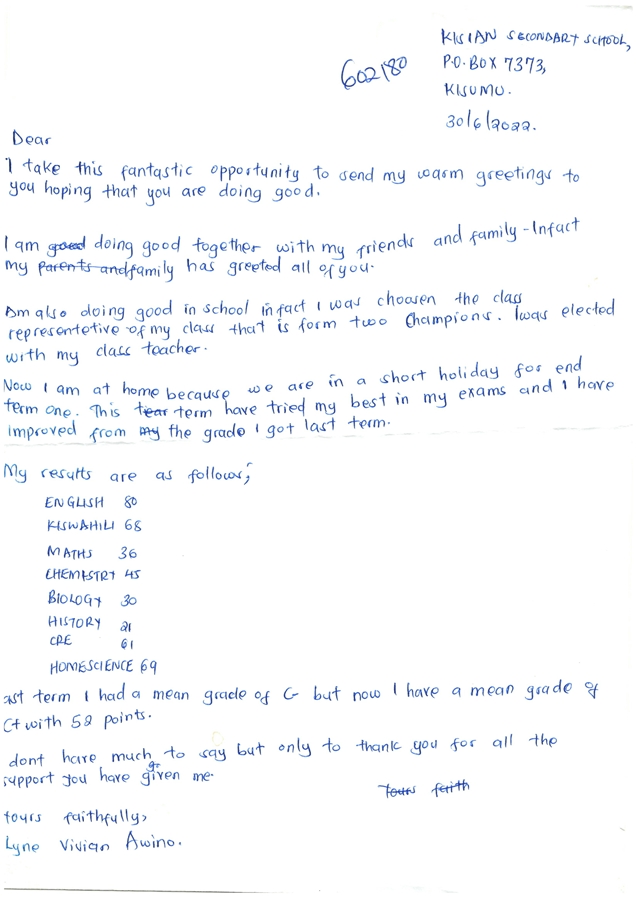 KISIAN SECONDARY SCHOOL,
602180
P.O.BOX 7373,
KISUMU.
30/6/2022.
Dear
I take this fantastic opportunity to send my warm greetings to
you hoping that you are doing good.
I am good doing good together with my friends and family - Infact
my parents and family has greeted all of you.
Am also doing good in school infact I was choosen the class
representetive of my class that is form two Champions. I was elected
with my class teacher.
Now I am at home because we are in a short holiday for end
term one. This tear term have tried my best in my exams and I have
improved from my the grade I got last term.
My results are as follows;
ENGLISH 80
KISWAHILI 68
MATHS 36
CHEMISTRY 45
BIOLOGY 30
HISTORY 21
CRE 61
HOMESCIENCE 69
ast term I had a mean grade of C- but now I have a mean grade of
C+ with 52 points.
dont have much to say but only to thank you for all the
support you have given me.
Yours faith
Yours faithfully,
Lyne Vivian Awino.